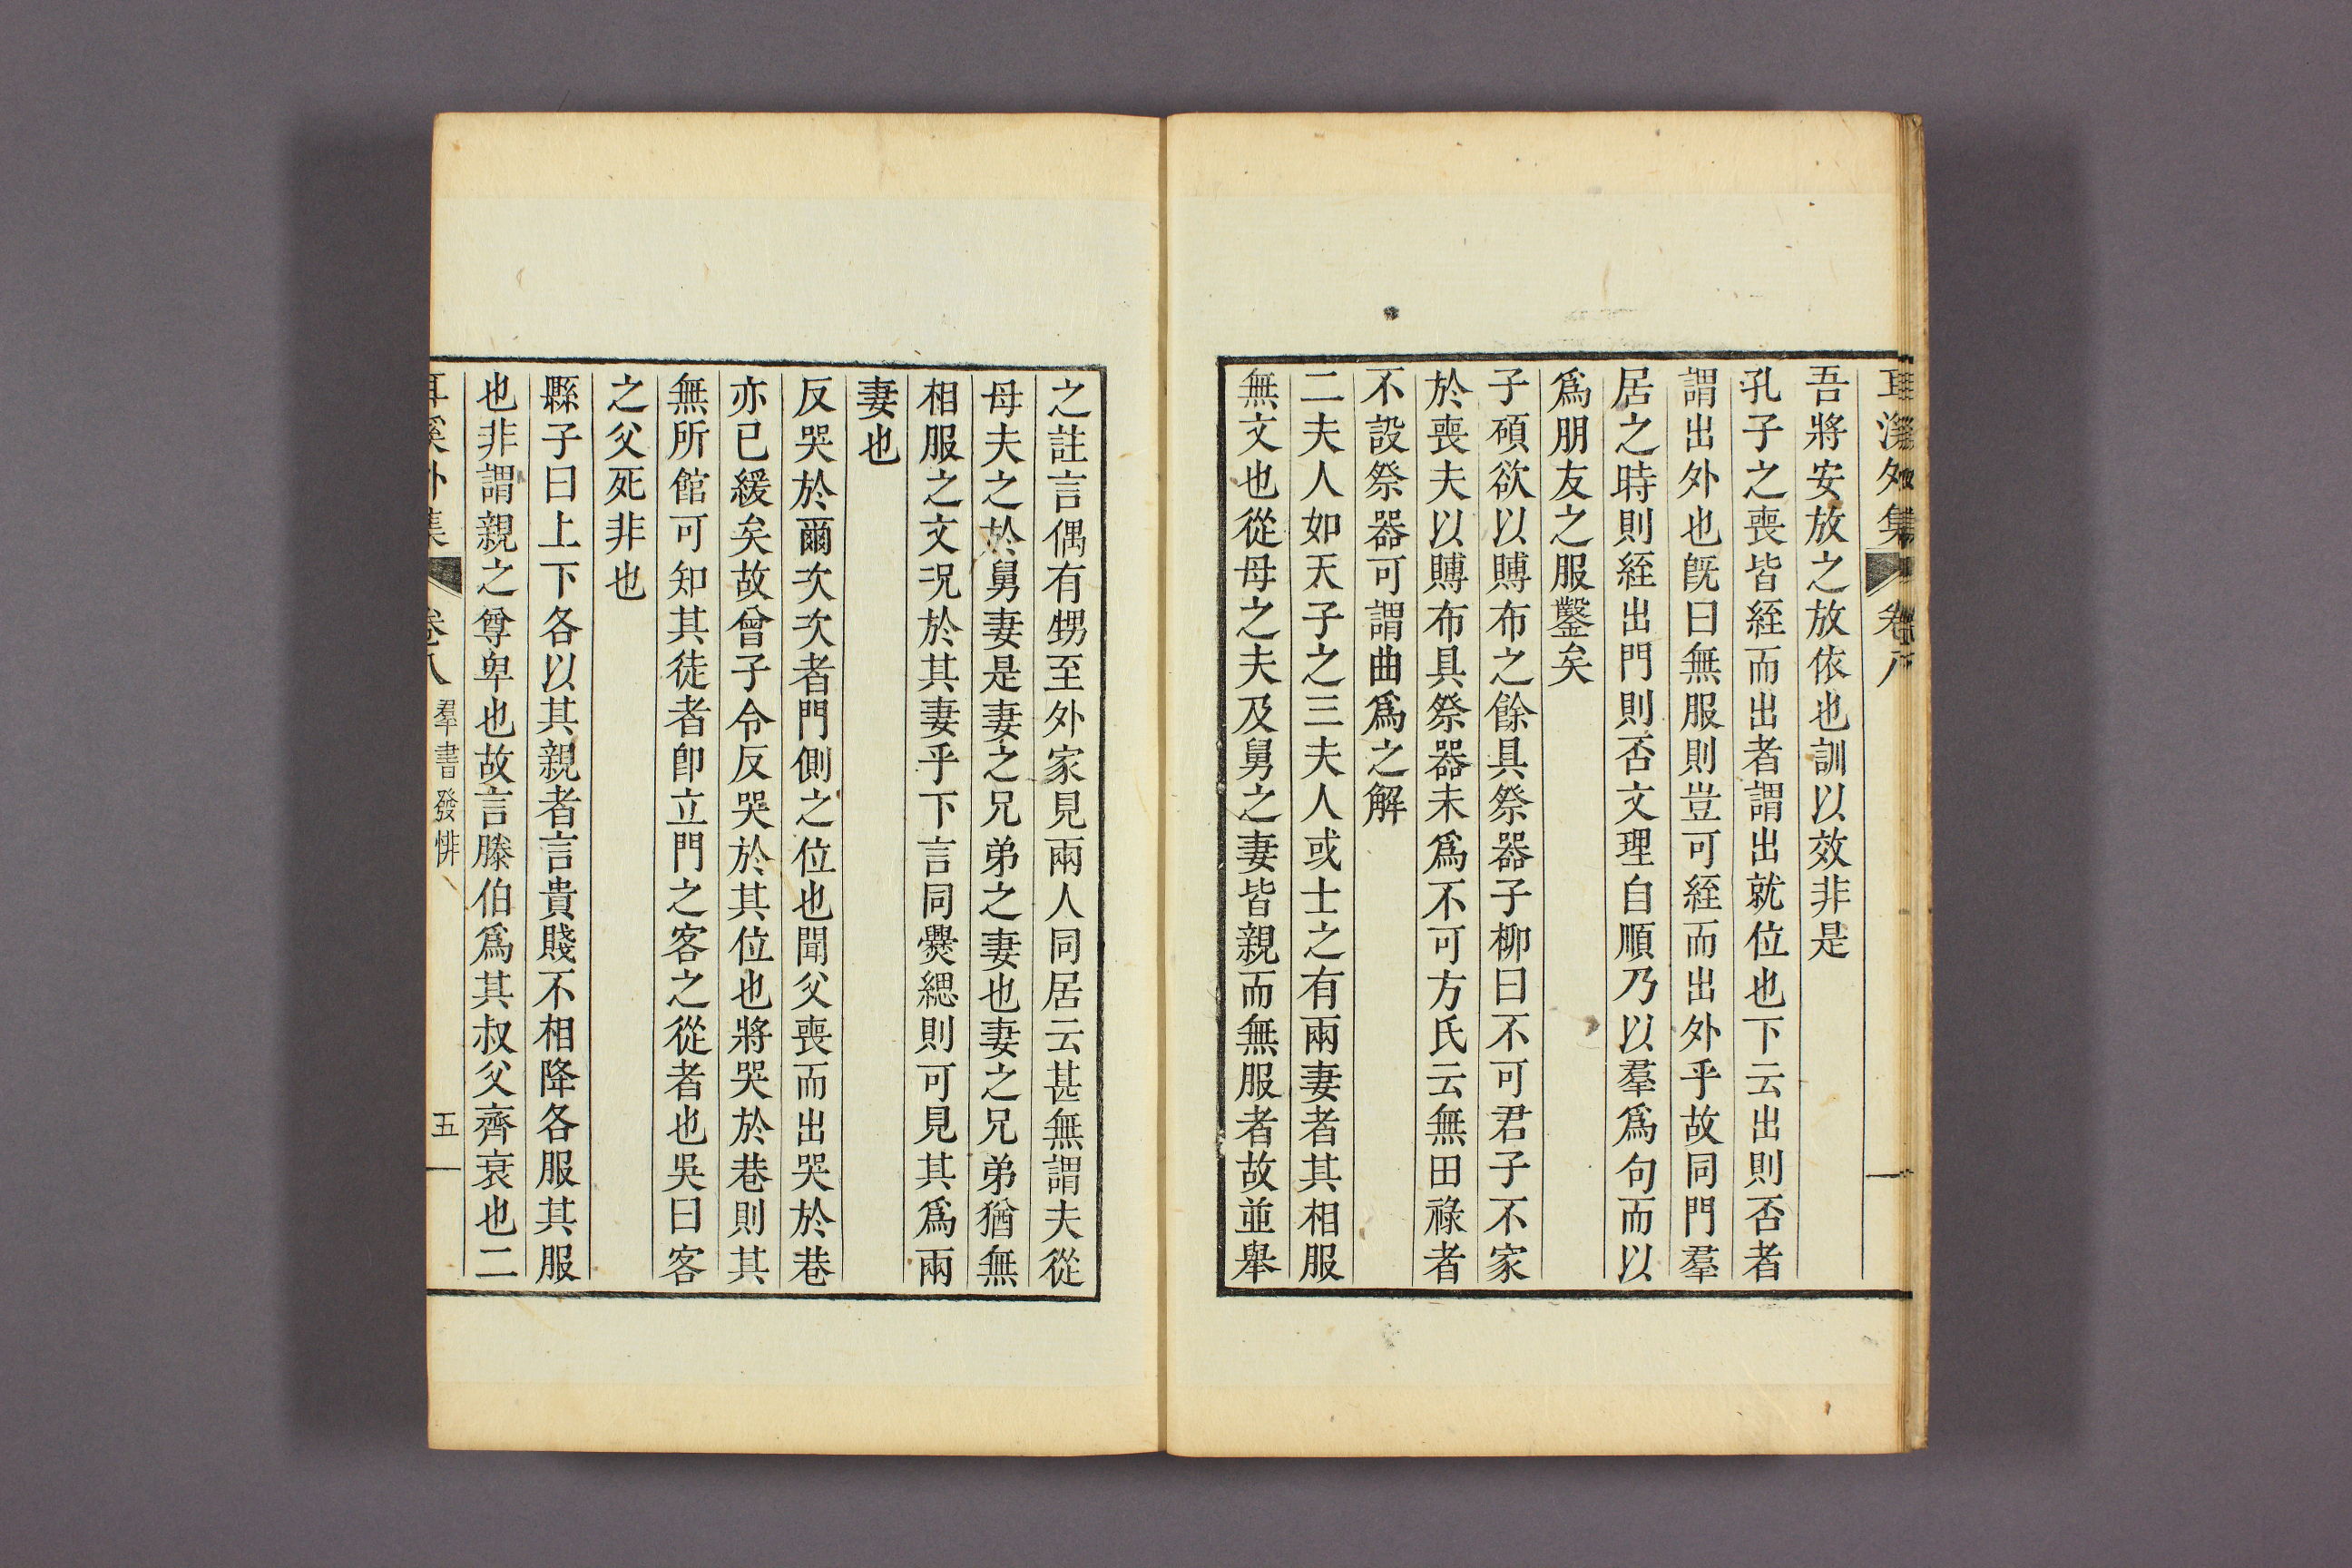 耳溪外集 卷八
吾將安放之放依也訓以效非是
孔子之喪皆絰而出者謂出就位也下云出則否者
謂出外也旣曰無服則豈可絰而出外乎故同門羣
居之時則絰出門則否文理自順乃以羣爲句而以
爲朋友之服鑿矣
子碩欲以賻布之餘具祭器子柳曰不可君子不家
於喪夫以賻布具祭器未爲不可方氏云無田祿者
不設祭器可謂曲爲之解
二夫人如天子之三夫人或士之有兩妻者其相服
無文也從母之夫及舅之妻皆親而無服者故並舉
之註言偶有甥至外家見兩人同居云甚無謂夫從
母夫之於舅妻是妻之兄弟之妻也妻之兄弟猶無
相服之文况於其妻乎下言同爨緦則可見其爲兩
妻也
反哭於爾次次者門側之位也聞父喪而出哭於巷
亦已緩矣故曾子令反哭於其位也將哭於巷則其
無所館可知其徒者卽立門之客之從者也吳曰客
之父死非也
縣子曰上下各以其親者言貴賤不相降各服其服
也非謂親之尊卑也故言滕伯爲其叔父齊衰也二
耳溪外集 卷八 羣書發悱 五